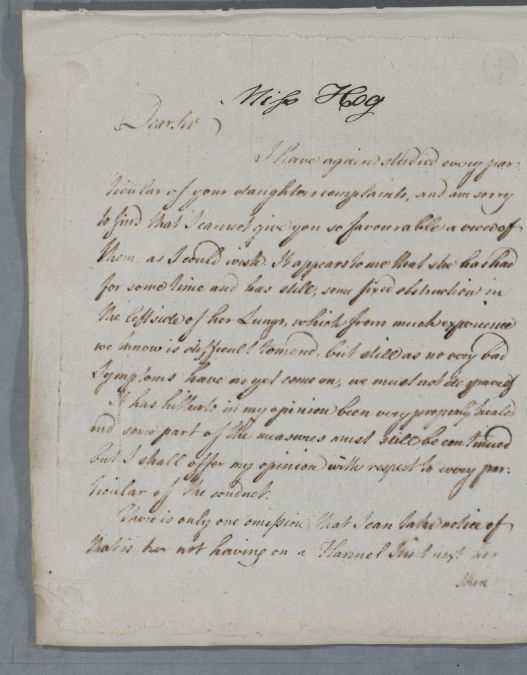 Miss Hog
Dear Sir
I have again studied every par:
ticular of your daughters complaints, and am sorry
to find that I cannot give you so favourable a view of
them, as I could wish. It appears to me that she has had
for some time and has still, some fixed obstruction in
the left side of her Lungs, which from much experience
we know is difficult to mend, but still as no very bad
Symptoms have as yet come on, we must not despair of
It has hitherto in my opinion been very properly treated
and some part of the measures must still be continued
but I shall offer my opinion with respect to every par:
ticular of the conduct.
There is only one omission, that I can take notice of
that is her not having on a Flannel Shirt next her
skin